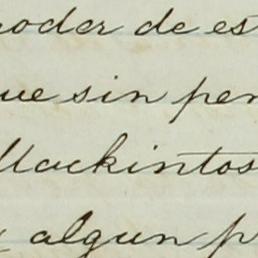 poder de es
ue sin per
Mackintos
algun p